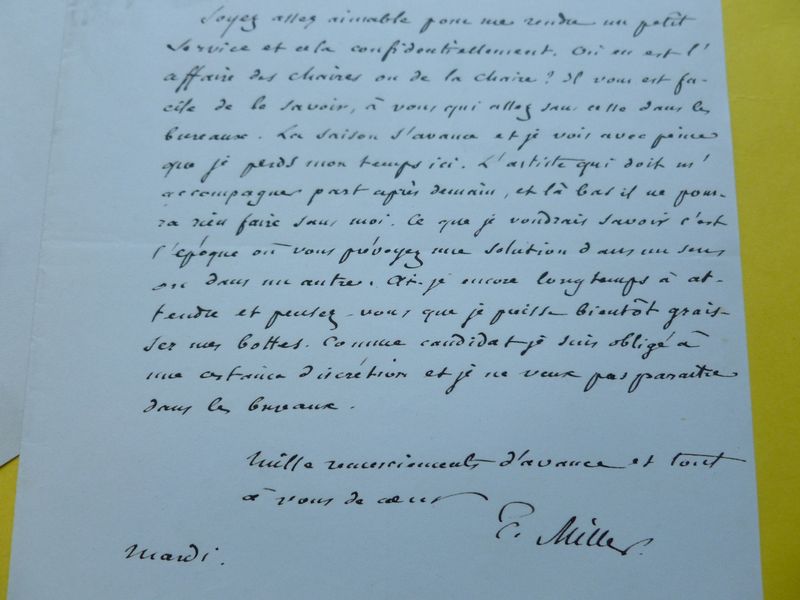 Soyez assez aimable pour me rendre un petit
service et cela confidentiellement. Où en est l'
affaire des chaires ou de la chaire? Il vous est fa-
cile de le savoir, à vous qui allez sans cesse dans les
bureaux. La saison s'avance et je vois avec peine
que je perds mon temps ici. L'artiste qui doit m'
accompagner part après demain, et là bas il ne pour-
ra rien faire sans moi. Ce que je voudrais savoir c'est
l'époque où vous prévoyez une solution dans un sens
ou dans un autre. Ai-je encore longtemps à at-
tendre et pensez-vous que je puisse bientôt grais-
ser mes bottes. Comme candidat je suis obligé à
une certaine discrétion et je ne veux pas paraître
dans les bureaux.
Mille remerciements d'avance et tout
à vous de coeur
E. Miller.
Mardi.